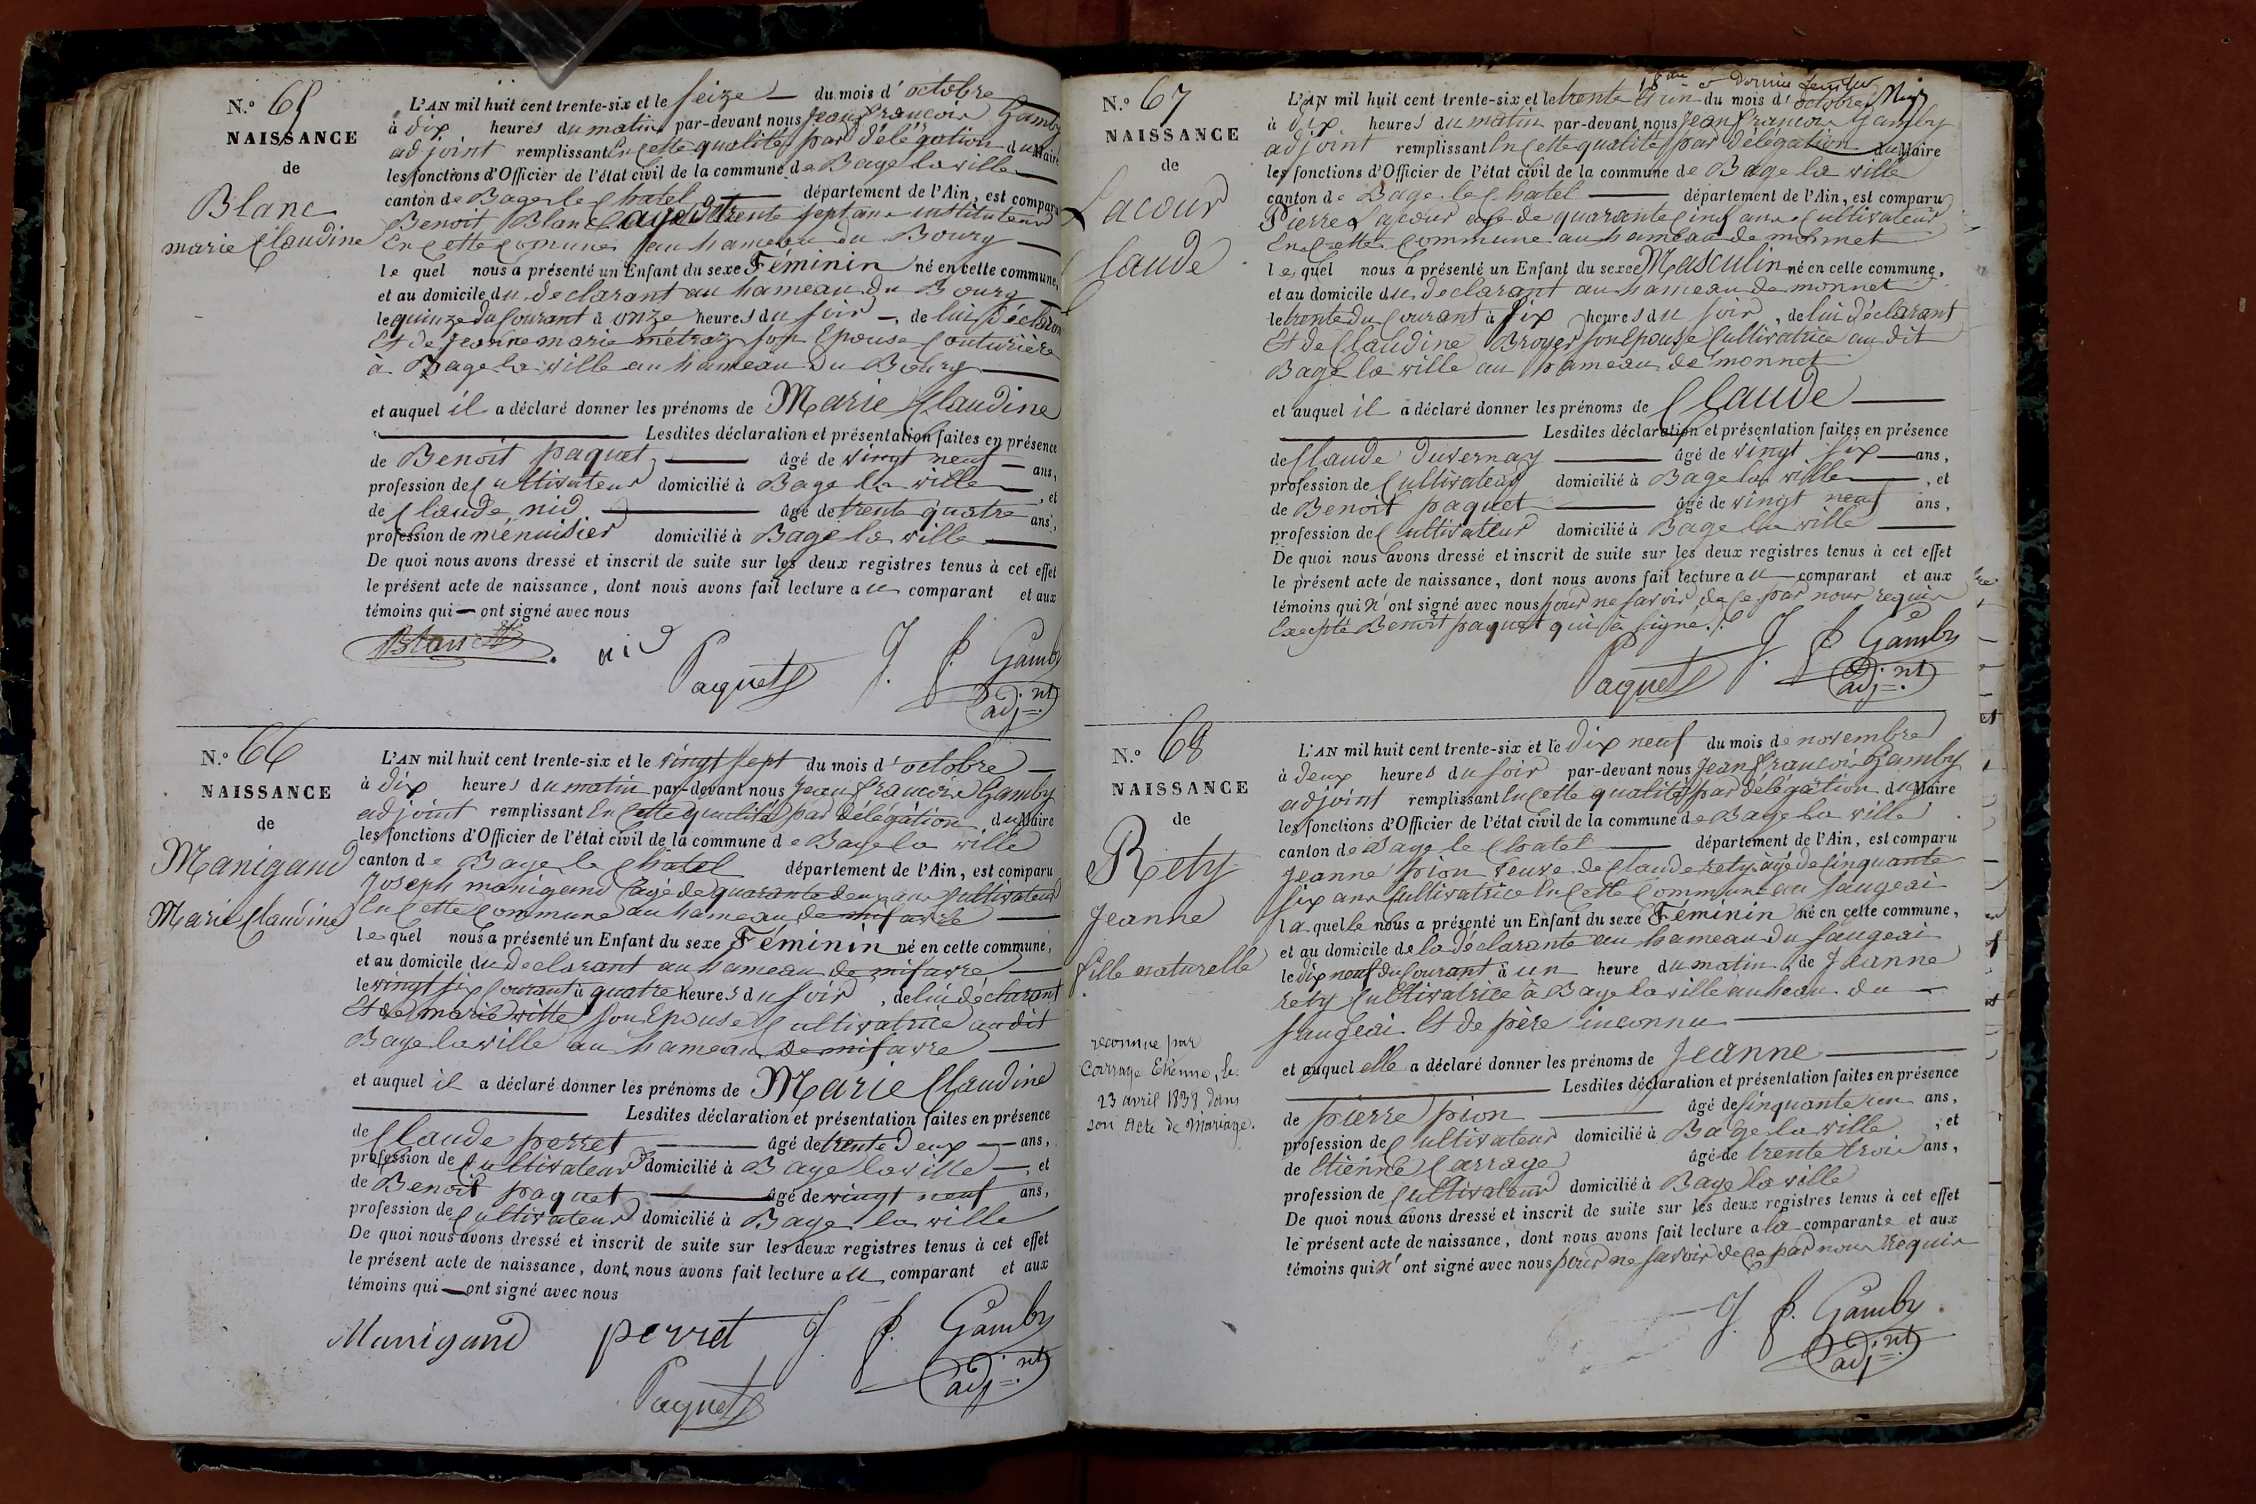 N.° 65
NAISSANCE
de
Blanc
marie Claudine
L'AN mil huit cent trente-six et le seize du mois d'octobre
à dix heures du matin par-devant nous Jean françois Gamby
adjoint remplissant en cette qualité par délégation du Maire
les fonctions d'Officier de l'état civil de la commune de Bage la ville
canton de Bage le Chatel département de l'Ain, est comparu
Benoit Blanc agé de trente sept ans instituteur
En cette comune au hameau du Bourg
le quel nous a présenté un Enfant du sexe Féminin né en cette commune,
et au domicile du declarant au hameau du Bourg
le quinze du Courant à onze heures du soir, de lui Déclarant
Et de Jeanne marie métraz son Epouse Couturière
à Bage la ville au hameau du Bourg
et auquel il a déclaré donner les prénoms de Marie Claudine
Lesdites déclaration et présentation faites en présence
de Benoit paquet âgé de vingt neuf ans,
profession de Cultivateur domicilié à Bage la ville, et
de Claude nid âgé de trente quatre ans,
profession de menuisier domicilié à Bage la ville
De quoi nous avons dressé et inscrit de suite sur les deux registres tenus à cet effet
le présent acte de naissance, dont nous avons fait lecture au comparant et aux
témoins qui ont signé avec nous
Blanc nid Paquet J. f. Gamby
adj.nt
N.° 66
NAISSANCE
de
Manigand
Marie Claudine
L'AN mil huit cent trente-six et le vingt sept du mois d'octobre
à dix heures du matin par-devant nous Jean françois Gamby
adjoint remplissant En Cette qualité par délégation du Maire
les fonctions d'Officier de l'état civil de la commune de Bage la ville
canton de Bage le Chatel département de l'Ain, est comparu
Joseph manigand agé de quarante deux ans Cultivateur
En Cette Commune au hameau de mifavre
le quel nous a présenté un Enfant du sexe Féminin né en cette commune,
et au domicile du Declarant au hameau de mifavre
le vingt six Courant à quatre heures du soir, de lui déclarant
Et de marie vitte son Epouse Cultivatrice audit
Bage la ville au hameau de mifavre
et auquel il a déclaré donner les prénoms de Marie Claudine
Lesdites déclaration et présentation faites en présence
de Claude perret âgé de trente Deux ans,
profession de Cultivateur domicilié à Bage la ville, et
de Benoit paquet âgé de vingt neuf ans,
profession de Cultivateur domicilié à Bage la ville
De quoi nous avons dressé et inscrit de suite sur les deux registres tenus à cet effet
le présent acte de naissance, dont nous avons fait lecture au comparant et aux
témoins qui ont signé avec nous
Manigand perret J. f. Gamby
Paquet adj.nt
N.° 67
NAISSANCE
de
Lacour
Claude
L'AN mil huit cent trente-six et le trente et un du mois d'octobre
à dix heures du matin par-devant nous Jean françois Gamby
adjoint remplissant En Cette qualité par délégation du Maire
les fonctions d'Officier de l'état civil de la commune de Bage la ville
canton de Bage le Chatel département de l'Ain, est comparu
Pierre Lacour agé de quarante Cinq ans Cultivateur
En Cette Commune au hameau de monnet
le quel nous a présenté un Enfant du sexe Masculin né en cette commune,
et au domicile du declarant au hameau de monnet
le trente du Courant à six heures du soir, de lui déclarant
Et de Claudine Broyer son Epouse Cultivatrice au dit
Bage la ville au hameau de monnet
et auquel il a déclaré donner les prénoms de Claude
Lesdites déclaration et présentation faites en présence
de Claude Duvernay âgé de vingt six ans,
profession de Cultivateur domicilié à Bage la ville, et
de Benoit paquet âgé de vingt neuf ans,
profession de Cultivateur domicilié à Bage la ville
De quoi nous avons dressé et inscrit de suite sur les deux registres tenus à cet effet
le présent acte de naissance, dont nous avons fait lecture au comparant et aux
témoins qui n'ont signé avec nous pour ne savoir de ce par nous requis
Excepté Benoit paquet qui a signé
Paquet J. f. Gamby
adj.nt
N.° 68
NAISSANCE
de
Rety
Jeanne
fille naturelle
reconnue par
Carrage Etienne, le
23 avril 1838 dans
son Acte de Mariage.
L'AN mil huit cent trente-six et le dix neuf du mois de novembre
à deux heures du soir par-devant nous Jean françois Gamby
adjoint remplissant En Cette qualité par délégation du Maire
les fonctions d'Officier de l'état civil de la commune de Bage la ville
canton de Bage le Chatel département de l'Ain, est comparu
Jeanne pion veuve de Claude rety agé de Cinquante
six ans Cultivatrice En Cette Commune au saugeai
la quelle nous a présenté un Enfant du sexe Féminin né en cette commune,
et au domicile de la déclarante au hameau du saugeai
le dix neuf du Courant à un heure du matin, de Jeanne
rety Cultivatrice à Bage la ville au heau du
saugeai Et de père inconnu
et auquel elle a déclaré donner les prénoms de Jeanne
Lesdites déclaration et présentation faites en présence
de pierre pion âgé de Cinquante un ans,
profession de Cultivateur domicilié à Bage la ville, et
de Etienne Carrage âgé de trente trois ans,
profession de Cultivateur domicilié à Bage la ville
De quoi nous avons dressé et inscrit de suite sur les deux registres tenus à cet effet
le présent acte de naissance, dont nous avons fait lecture a la comparante et aux
témoins qui n'ont signé avec nous pour ne savoir de ce par nous requis
J. f. Gamby
adj.nt